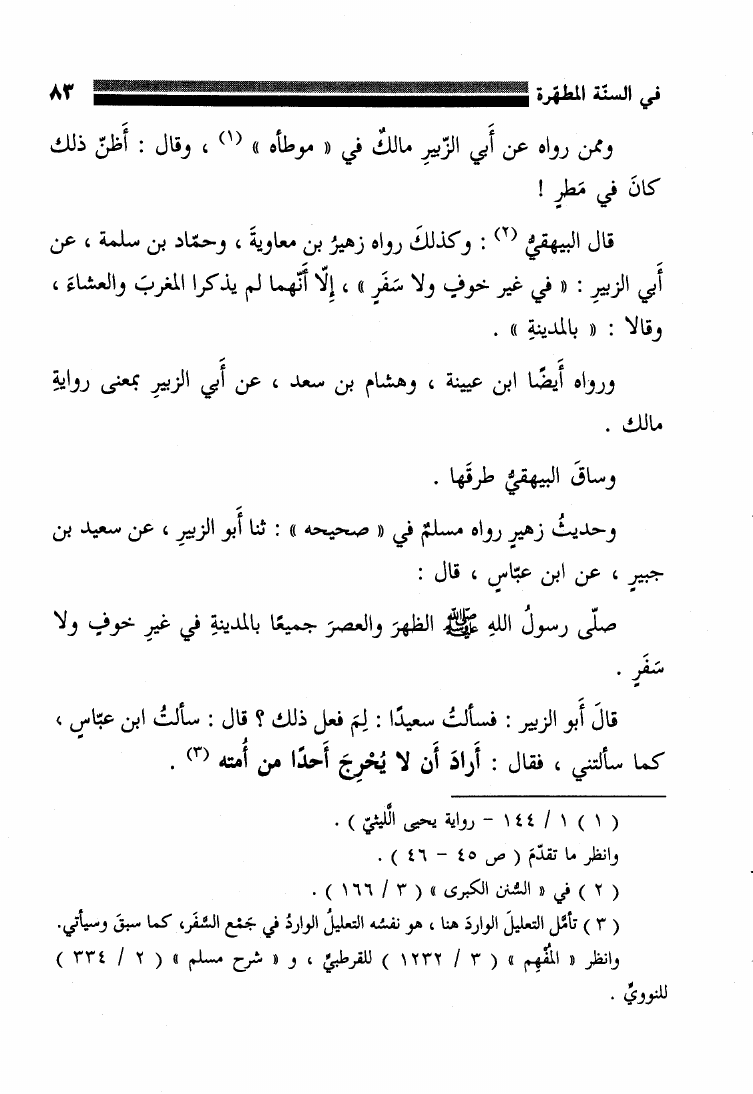 في السنّة المطهّرة ٨٣
وممن رواه عن أَبي الزّبيرِ مالكٌ في « موطأه » (١) ، وقال : أَظنّ ذلك
كانَ في مَطرٍ !
قال البيهقيُّ (٢) : وكذلكَ رواه زهيرُ بن معاويةَ ، وحمّاد بن سلمة ، عن
أَبي الزبيرِ : « في غير خوفٍ ولا سَفَرٍ » ، إِلّا أَنّهما لم يذكرا المغربَ والعشاءَ ،
وقالا : « بالمدينةِ » .
ورواه أَيضًا ابن عيينة ، وهشام بن سعد ، عن أَبي الزبيرِ بمعنى روايةِ
مالك .
وساقَ البيهقيُّ طرقَها .
وحديثُ زهيرٍ رواه مسلمٌ في « صحيحه » : ثنا أَبو الزبيرِ ، عن سعيد بن
جبيرٍ ، عن ابن عبّاسٍ ، قال :
صلّى رسولُ اللهِ ﷺ الظهرَ والعصرَ جميعًا بالمدينةِ في غيرِ خوفٍ ولا
سَفَرٍ .
قالَ أَبو الزبير : فسألتُ سعيدًا : لِمَ فعل ذلك ؟ قال : سألتُ ابن عبّاسٍ ،
كما سألتني ، فقال : أَرادَ أَن لا يُحْرِجَ أَحدًا من أُمته (٣) .
( ١ ) ١ / ١٤٤ – رواية يحيى الَّليثيّ ) .
وانظر ما تقدّمَ ( ص ٤٥ – ٤٦ ) .
( ٢ ) في « السُّنن الكبرى » ( ٣ / ١٦٦ ) .
( ٣ ) تأمَّل التعليلَ الواردَ هنا ، هو نفسُه التعليلُ الواردُ في جَمْع السَّفَر، كما سبقَ وسيأتي.
وانظر « المُفْهِم » ( ٣ / ١٢٣٢ ) للقرطبيِّ ، و « شرح مسلم » ( ٢ / ٣٣٤ )
للنوويِّ .